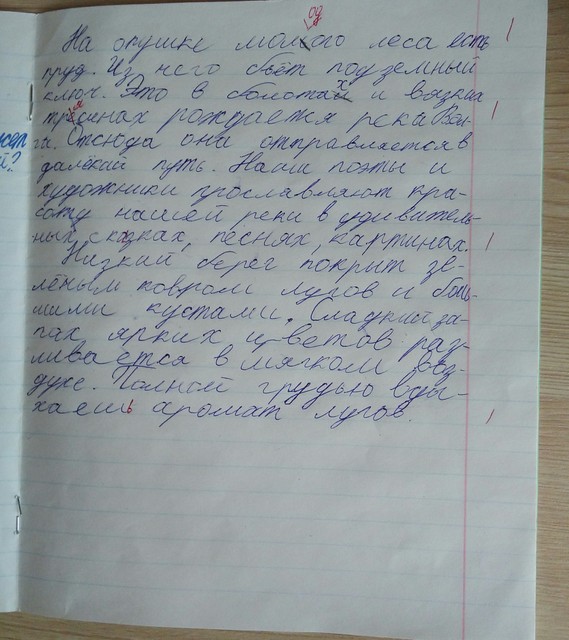 од
На опушке малого леса есть
пруд. Из него бьёт подземный
ключ. Это в болотах и вязких
трясинах рождается река Вол-
га. Отсюда она отправляется в
далёкий путь. Наши поэты и
художники прославляют кра-
соту нашей реки в удивитель-
ных сказках, песнях, картинах.
Низкий берег покрыт зе-
лёным ковром лугов и боль-
шими кустами. Сладкий за-
пах ярких цветов раз-
ливается в мягком воз-
духе. Полной грудью вды-
хаешь аромат лугов.